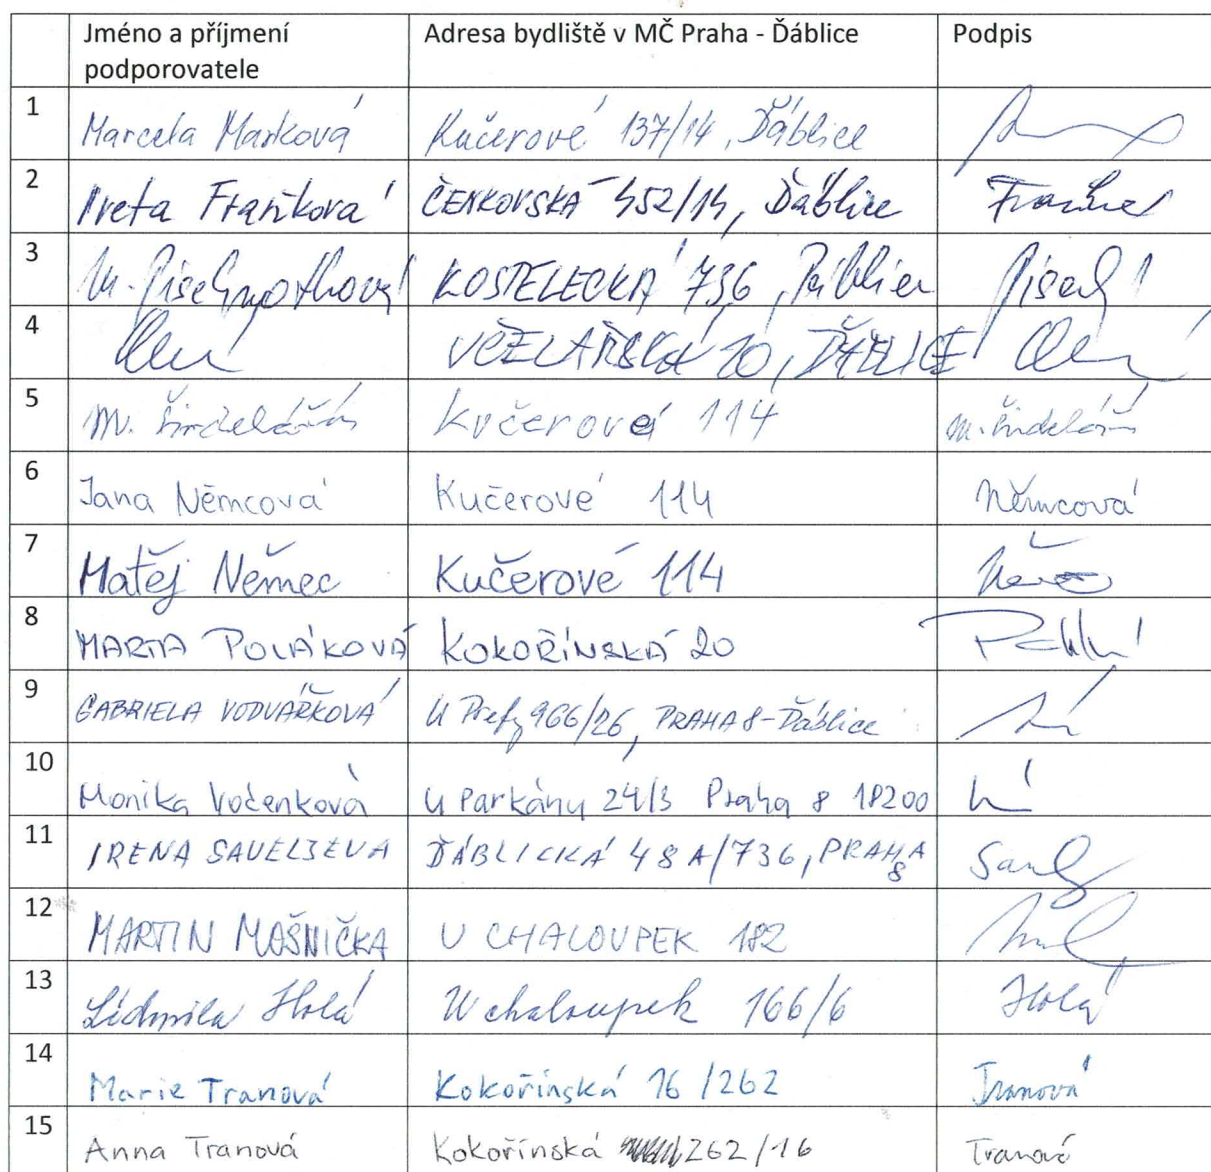 Jméno a příjmení podporovatele Adresa bydliště v MČ Praha - Ďáblice Podpis
1 Marcela Marková Kučerové 137/14, Ďáblice
2 Iveta Fraňková ČENKOVSKÁ 452/14, Ďáblice
3 M. KOSTELECKÁ 736,
4 VČELAŘSKÁ 10, ĎÁBLICE
5 M. Kučerové 114 M.
6 Jana Němcová Kučerové 114 Němcová
7 Matěj Němec Kučerové 114
8 MARTA POLÁKOVÁ KOKOŘÍNSKÁ 20
9 GABRIELA VODVÁŘKOVÁ U Prefy 966/26, PRAHA 8-Ďáblice
10 Monika Vočenková U Parkánu 24/3 Praha 8 18200
11 IRENA SAVELJEVA ĎÁBLICKÁ 48A/736, PRAHA 8
12 MARTIN MOŠNIČKA U CHALOUPEK 182
13 Lidmila Holá U chaloupek 166/6 Holá
14 Marie Tranová Kokořínská 16/262 Tranová
15 Anna Tranová Kokořínská 262/16 Tranová